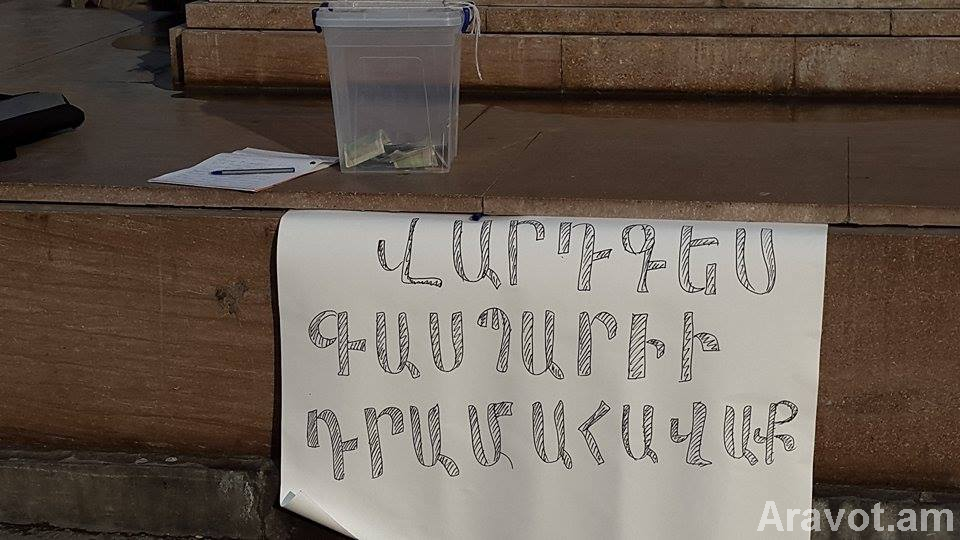 ՎԱՐԴԳԵՍ
ԳԱՍՊԱՐԻԻ
ԴՐԱՄԱՀԱՎԱՔ
Aravot.am